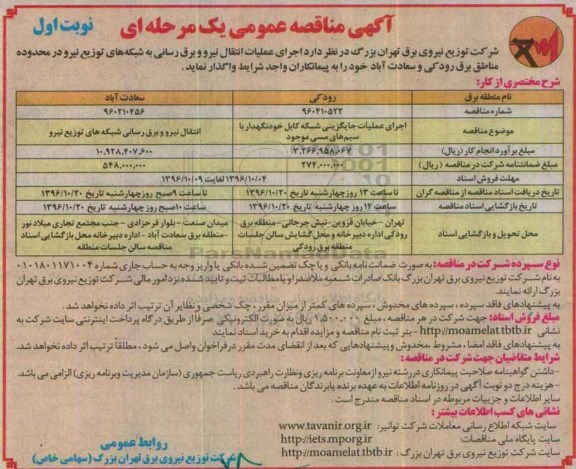 آگهی مناقصه عمومی یک مرحله ای
نوبت اول
شرکت توزیع نیروی برق تهران بزرگ در نظر دارد اجرای عملیات انتقال نیرو و برق رسانی به شبکه‌های توزیع نیرو در محدوده
مناطق برق رودکی و سعادت آباد خود را به پیمانکاران واجد شرایط واگذار نماید.
شرح مختصری از کار:
نام منطقه برق رودکی سعادت آباد
شماره مناقصه ۹۶۰۴۱۰۵۲۲ ۹۶۰۲۱۰۴۵۶
موضوع مناقصه اجرای عملیات جایگزینی شبکه کابل خودنگهدار با سیم‌های مسی موجود انتقال نیرو و برق رسانی شبکه های توزیع نیرو
مبلغ برآورد انجام کار (ریال) ۳,۲۶۶,۹۵۸,۰۶۷ ۱۰,۹۲۸,۴۰۷,۶۰۰
مبلغ ضمانتنامه شرکت در مناقصه (ریال) ۲۷۴,۰۰۰,۰۰۰ ۵۴۸,۰۰۰,۰۰۰
مهلت فروش اسناد ۱۳۹۶/۱۰/۰۴ لغایت ۱۳۹۶/۱۰/۰۹
تاریخ دریافت اسناد مناقصه از مناقصه گران تا ساعت ۱۳ روز چهارشنبه تاریخ ۱۳۹۶/۱۰/۲۰ تا ساعت ۹ صبح روز چهارشنبه تاریخ ۱۳۹۶/۱۰/۲۰
تاریخ بازگشایی اسناد مناقصه ساعت ۱۴ روز چهارشنبه تاریخ ۱۳۹۶/۱۰/۲۰ ساعت ۱۰ صبح روز چهارشنبه تاریخ ۱۳۹۶/۱۰/۲۰
محل تحویل و بازگشایی اسناد تهران - خیابان قزوین - نبش جرجانی - منطقه برق رودکی اداره دبیرخانه و محل گشایش سالن جلسات منطقه برق رودکی میدان صنعت - بلوار فرحزادی - جنب مجتمع تجاری میلاد نور - منطقه برق سعادت آباد - اداره دبیرخانه محل بازگشایی اسناد مناقصه سالن جلسات منطقه
نوع سپرده شرکت در مناقصه: به صورت ضمانت نامه بانکی و یا چک تضمین شده بانکی یا واریز وجه به حساب جاری شماره ۰۱۰۱۸۰۱۱۷۱۰۰۴
به نام شرکت توزیع نیروی برق تهران بزرگ بانک صادرات شعبه ملاصدرا و یا مطالبات ثبت و تایید شده نزد امور مالی شرکت توزیع نیروی برق تهران
بزرگ ارائه نمایند.
به پیشنهادهای فاقد سپرده ، سپرده های مخدوش ، سپرده های کمتر از میزان مقرر ، چک شخصی و نظایر آن ترتیب اثر داده نخواهد شد.
مبلغ فروش اسناد: جهت شرکت در هر مناقصه ، مبلغ ۱,۵۰۰,۰۰۰ ریال به صورت الکترونیکی صرفا از طریق درگاه پرداخت اینترنتی سایت شرکت به
نشانی http://moamelat.tbtb.ir - بنر ثبت نام مناقصه و مزایده اقدام به خرید اسناد نمایند
به پیشنهادهای فاقد امضا ، مشروط ، مخدوش و پیشنهادهایی که بعد از انقضای مدت مقرر در فراخوان واصل می شود ، مطلقاً ترتیب اثر داده نخواهد شد.
شرایط متقاضیان جهت شرکت در مناقصه:
- داشتن گواهینامه صلاحیت پیمانکاری در رشته نیرو از معاونت برنامه ریزی و نظارت راهبردی ریاست جمهوری (سازمان مدیریت و برنامه ریزی) الزامی می باشد.
- هزینه درج دو نوبت آگهی در روزنامه اطلاعات به عهده برنده یا برندگان مناقصه می باشد.
سایر اطلاعات و جزییات مربوطه در اسناد مناقصه مندرج است.
نشانی های کسب اطلاعات بیشتر :
سایت شبکه اطلاع رسانی معاملات شرکت توانیر: www.tavanir.org.ir
سایت پایگاه ملی مناقصات: http://iets.mporg.ir
سایت شرکت توزیع نیروی برق تهران بزرگ : http://moamelat.tbtb.ir
روابط عمومی
شرکت توزیع نیروی برق تهران بزرگ (سهامی خاص)